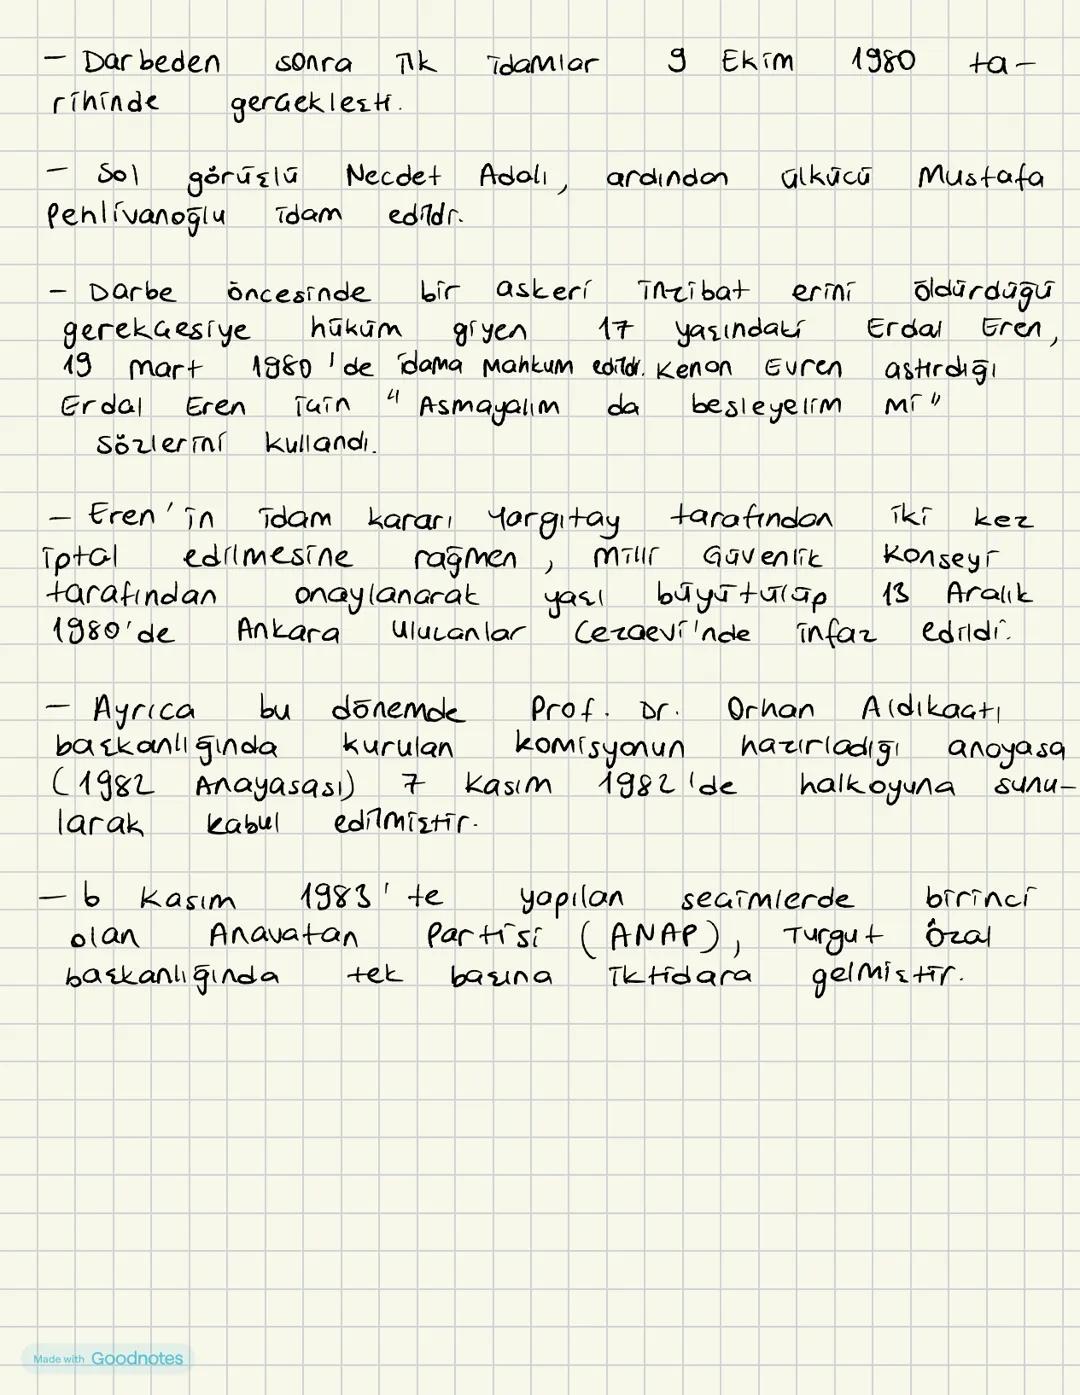 - Darbeden sonra ilk idamlar 9 Ekim 1980 ta-
rihinde gerçekleşti.
- Sol görüşlü Necdet Adalı, ardından ülkücü Mustafa
Pehlivanoğlu idam edildr.
- Darbe öncesinde bir askeri inzibat erini öldürdüğü
gerekçesiye hüküm giyen 17 yaşındaki Erdal Eren,
19 mart 1980'de idama Mahkum edildr. Kenan Evren astırdığı
Erdal Eren için "Asmayalım da besleyelim mi"
sözlerini kullandı.
- Eren'in idam kararı Yargıtay tarafından iki kez
iptal edilmesine rağmen, Milli Güvenlik Konseyi
tarafından onaylanarak yaşı büyütülüp 13 Aralık
1980'de Ankara Ulucanlar Cezaevi'nde infaz edildi.
- Ayrıca bu dönemde Prof. Dr. Orhan Aldıkaçtı
başkanlığında kurulan komisyonun hazırladığı anayasa
(1982 Anayasası) 7 Kasım 1982'de halkoyuna sunu-
larak kabul edilmiştir.
- 6 Kasım 1983'te yapılan seçimlerde birinci
olan Anavatan Partisi (ANAP), Turgut Özal
başkanlığında tek başına iktidara gelmiştir.
Made with Goodnotes